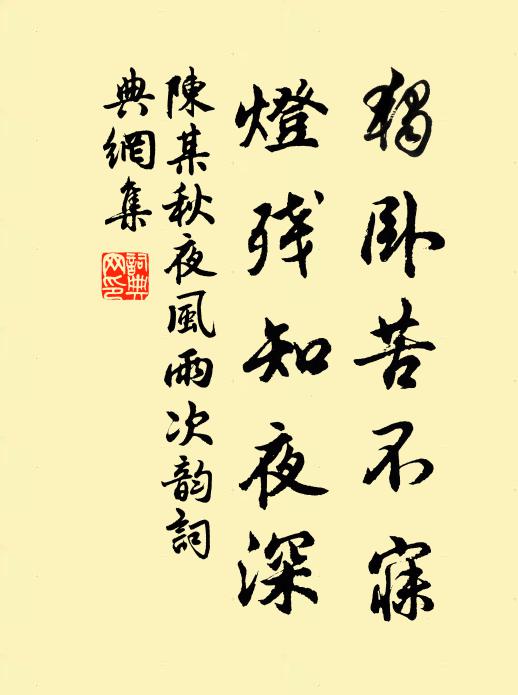 獨卧苦不寐
燈残知夜深
陳某秋夜風雨次韵詞
典網集
詞典網印